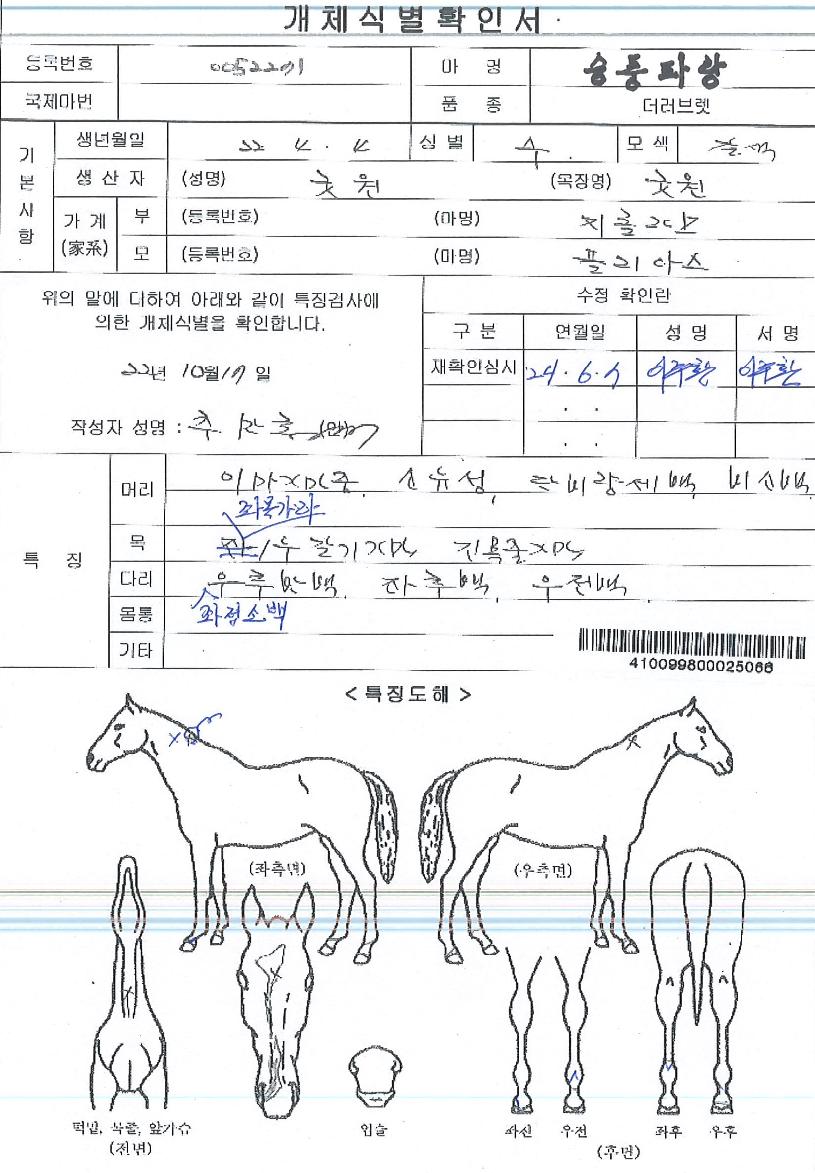 개체식별확인서
등록번호 0052201 마 명 승풍파랑
국제마번 품 종 더러브렛
기본사항
생년월일 22. 4. 4 성별 수 모색 갈색
생산자 (성명) (목장명)
가계(家系) 부 (등록번호) (마명) 지롤라모
모 (등록번호) (마명) 플리아스
위의 말에 대하여 아래와 같이 특징검사에
의한 개체식별을 확인합니다.
22년 10월 17일
작성자 성명 :
수정 확인란
구 분 연월일 성 명 서 명
재확인심사 24. 6. 이주환 이주환
. .
. .
특 징
머리 유성, 단비량세백 비소백
좌목가마
목 좌/우 갈기 목줄
다리 우후반백, 좌후백, 우전백
좌점소백
몸통
기타
410099800025066
< 특징도해 >
(좌측면) (우측면)
턱밑, 목줄, 앞가슴
(전면)
입술
좌전 우전 좌후 우후
(후면)